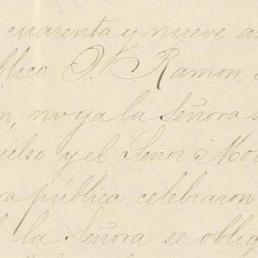 cuarenta y nueve a
blico D. Ramon
n, no ya la Señora
ielso y el Señor Mo
ra pública celebraron
la Señora se oblig